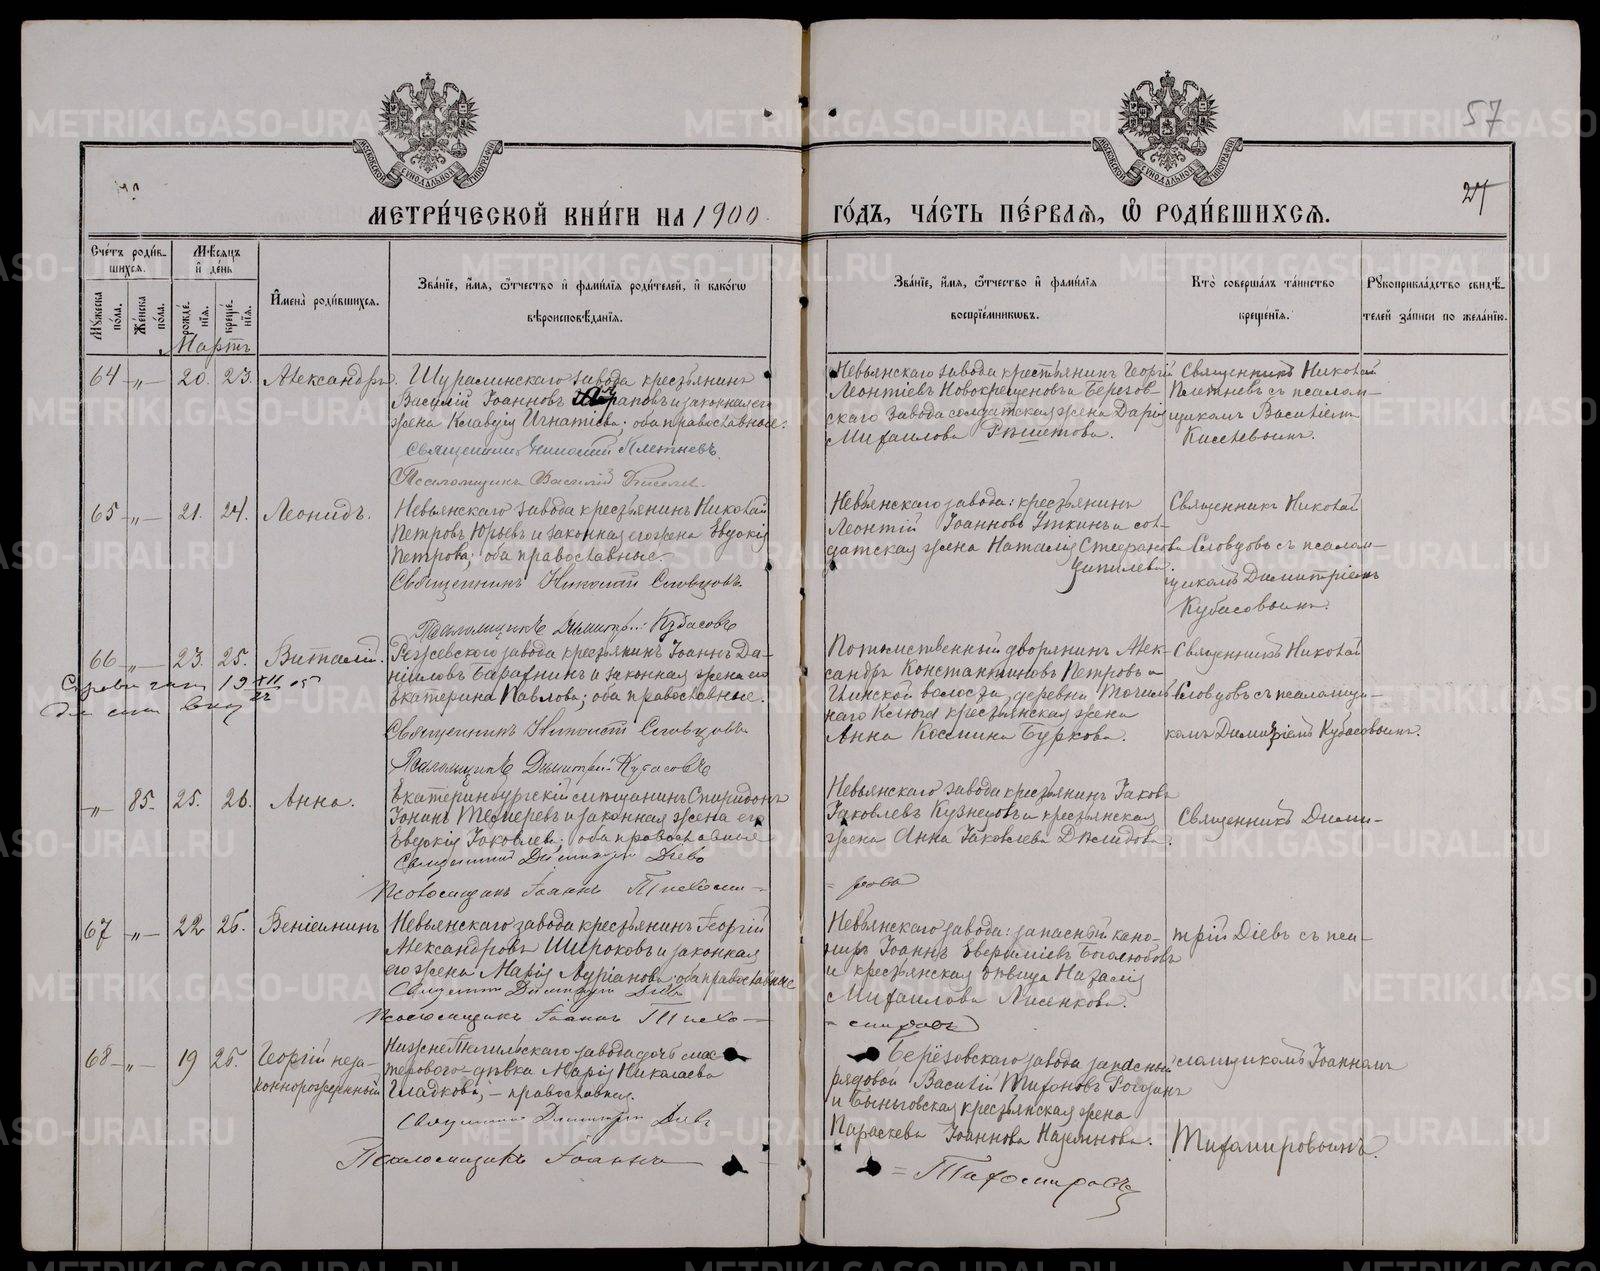 57
27
МОСКОВСКОЙ СѴНОДАЛЬНОЙ ТИПОГРАФІИ
МОСКОВСКОЙ СѴНОДАЛЬНОЙ ТИПОГРАФІИ
МЕТРИ́ЧЕСКОЙ КНИ́ГИ НА 1900
ГО́ДЪ, ЧА́СТЬ ПЕ́РВАѦ, Ѡ҆ РОДИ́ВШИХСѦ.
Сче́тъ роди́в-
шихсѧ.
Мꙋ́жеска по́ла.
Же́нска по́ла.
Мѣ́сѧцъ
и҆ де́нь
рожде́-
нїѧ.
креще́-
нїѧ.
И҆мена̀ роди́вшихсѧ.
Зва́нїе, и҆́мѧ, ѻ҆́тчество и҆ фами́лїѧ роди́телей, и҆ како́гѡ
вѣроисповѣ́данїѧ.
Зва́нїе, и҆́мѧ, ѻ҆́тчество и҆ фами́лїѧ
воспрїе́мникѡвъ.
Кто̀ соверша́лъ та́инство
креще́нїѧ.
Рꙋкоприкла́дство свидѣ́-
телей за́писи по жела́нїю.
Мартъ
64 „ 20. 23. Александръ.
Шуралинскаго завода крестьянинъ
Василій Іоанновъ и законная его
жена Клавдія Игнатіева; оба православные.
Священникъ Николай Плетневъ.
Псаломщикъ Василій Киселев.
Невьянскаго завода крестьянинъ Георгій
Леонтіевъ Новокрещеновъ и Берегов-
скаго завода солдатская жена Дарія
Михаилова Рѣшетова.
Священникъ Николай
Плетневъ съ псалом-
щикомъ Василіемъ
Киселевымъ.
65 „ 21. 24. Леонидъ.
Невьянскаго завода крестьянинъ Николай
Петровъ Юрьевъ и законная его жена Евдокія
Петрова; оба православные.
Священникъ Николай Словцовъ.
Псаломщикъ Димитрій Кубасовъ
Невьянскаго завода: крестьянинъ
Леонтій Іоанновъ Уткинъ и сол-
датская жена Наталія Стефанова
Священникъ Николай
Словцовъ съ псалом-
щикомъ Димитріемъ
Кубасовымъ.
66 „ 23. 25. Виталій.
19 XII/22 05
Режевского завода крестьянинъ Іоаннъ Да-
ниловъ Барахнинъ и законная жена его
Екатерина Павлова; оба православные.
Священникъ Николай Словцовъ
Псаломщикъ Димитрій Кубасовъ
Потомственный дворянинъ Алек-
сандръ Константиновъ Петровъ и
волости, деревни Точиль-
наго Ключа крестьянская жена
Анна Космина Буркова.
Священникъ Николай
Словцовъ съ псаломщи-
комъ Димитріемъ Кубасовымъ.
„ 85. 25. 26. Анна.
Екатеринбургскій мѣщанинъ Спиридонъ
и законная жена его
Евдокія Іаковлева; оба православные
Священникъ Димитрій Діевъ
Псаломщикъ Іоаннъ Тихоми-
Невьянскаго завода крестьянинъ Іаковъ
Іаковлевъ Кузнецовъ и крестьянская
жена Анна Іаковлева Демидова.
= ровъ
Священникъ Дими-
67 „ 22 26. Веніаминъ
Невьянскаго завода крестьянинъ Георгій
Александровъ Широковъ и законная
его жена Марія Ауріанова; оба православные
Священникъ Димитрій Діевъ
Псаломщикъ Іоаннъ Тихо-
Невьянскаго завода: запасный кано-
ниръ Іоаннъ Евѳиміевъ Боголюбовъ
и крестьянская дѣвица Наталія
Михаилова Лисенкова.
- мировъ
трій Діевъ съ пса-
68 „ 19 26. Георгій неза-
коннорожденный
НижнеТагильскаго завода дочь мас-
терового-дѣвка Марія Николаева
Гладкова, - православная.
Священникъ Димитрій Діевъ
Псаломщикъ Іоаннъ
Берёзовскаго завода запасный
рядовой Василій Тихоновъ Рогдинъ
и Быньговская крестьянская жена
Параскева Іоаннова Назминова.
= Тихомировъ
ломщикомъ Іоанномъ
Тихомировымъ.
METRIKI.GASO-URAL.RU